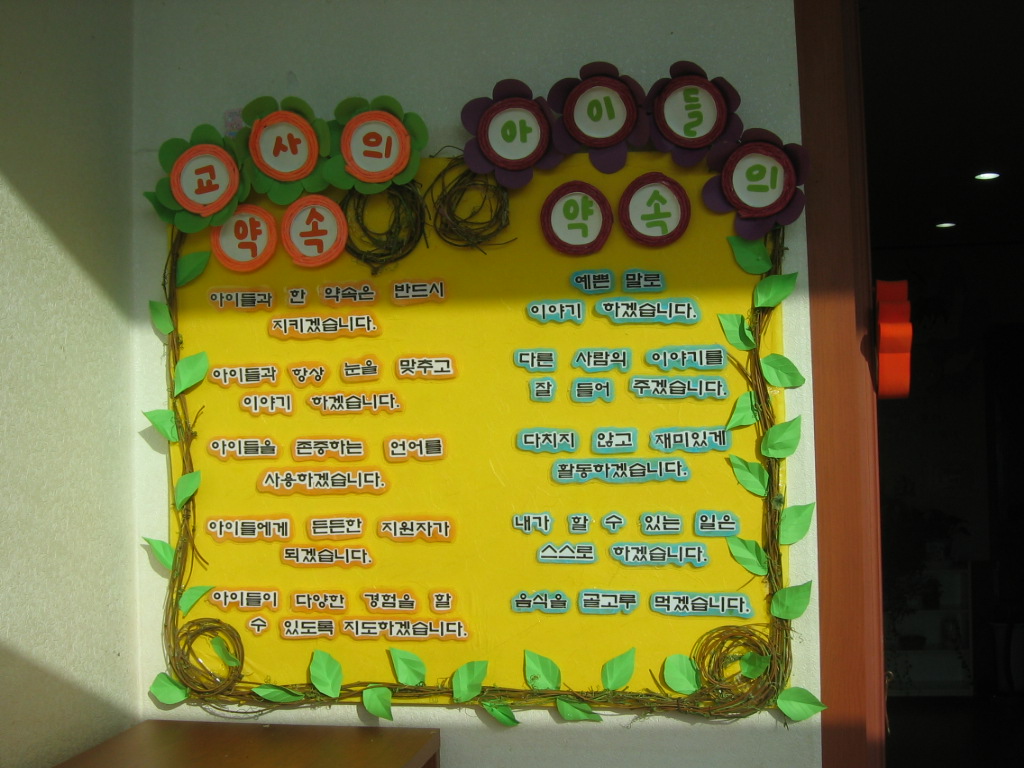 교사의
약속
아이들과 한 약속은 반드시
지키겠습니다.
아이들과 항상 눈을 맞추고
이야기 하겠습니다.
아이들을 존중하는 언어를
사용하겠습니다.
아이들에게 든든한 지원자가
되겠습니다.
아이들이 다양한 경험을 할
수 있도록 지도하겠습니다.
아이들의
약속
예쁜 말로
이야기 하겠습니다.
다른 사람의 이야기를
잘 들어 주겠습니다.
다치지 않고 재미있게
활동하겠습니다.
내가 할 수 있는 일은
스스로 하겠습니다.
음식을 골고루 먹겠습니다.